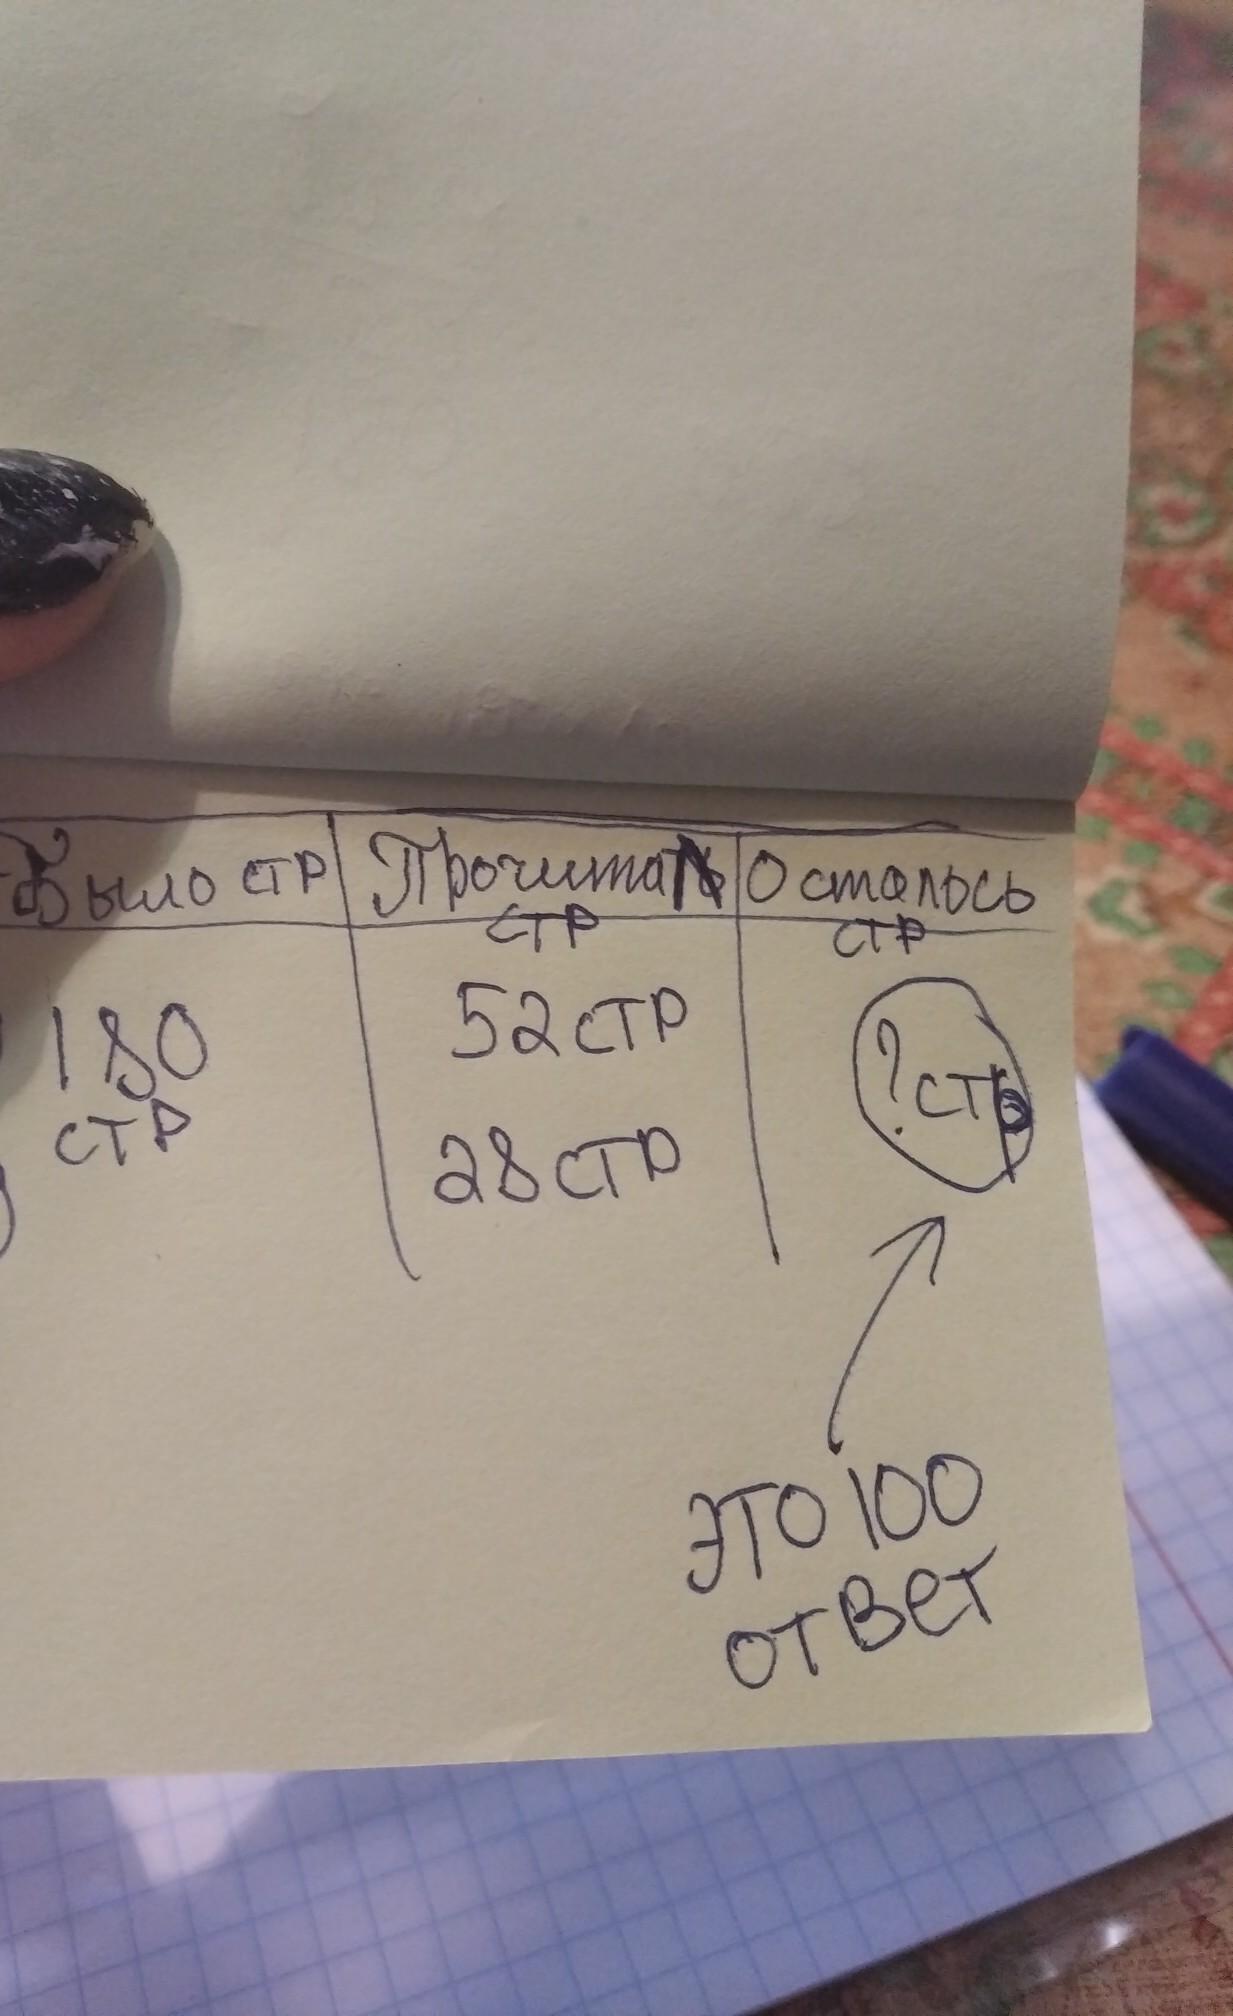 Было стр Прочитал Осталось
стр стр
180 52 стр ? стр
стр 28 стр
это 100
ответ